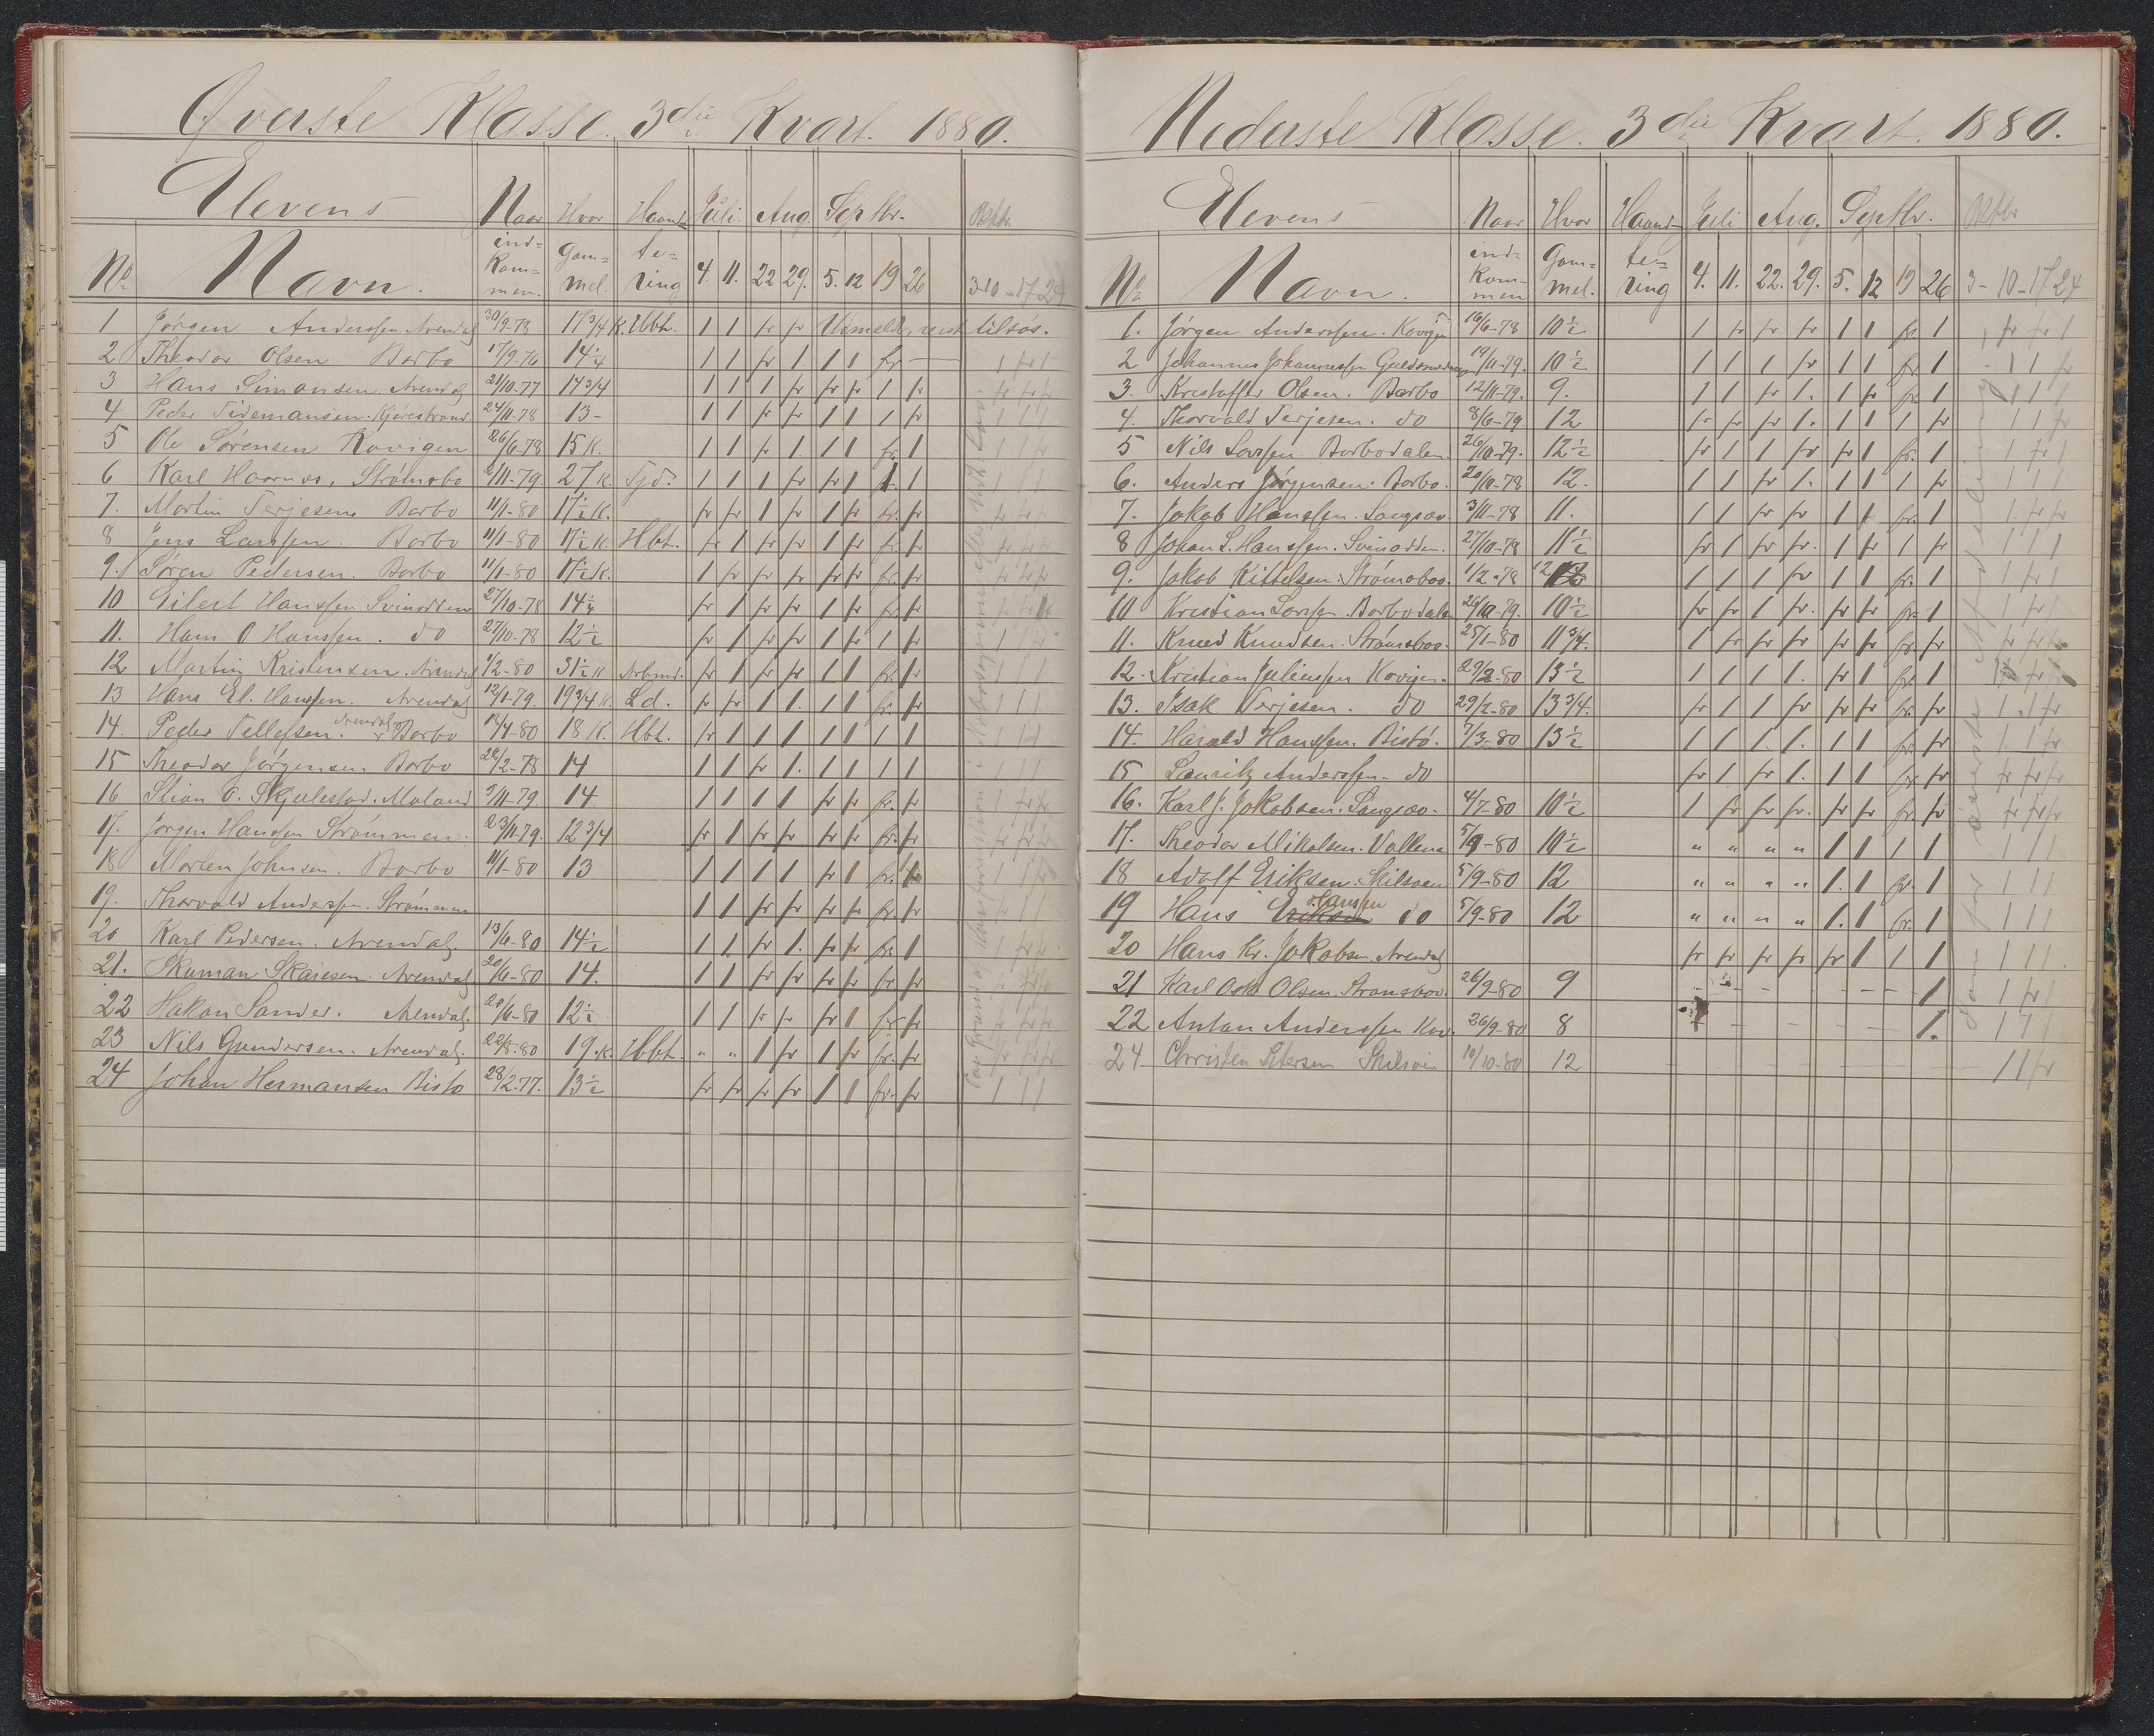 Øverste Klasse. 3die Kvart. 1880.
Elevens Naar Hvor Haand Juli Aug. Septbr. Oktbr.
No Navn. ind= kom= men. Gam= mel. te= ring 4. 11. 22 29. 5. 12 19 26 3 10 - 17 24
1 Jørgen Anderssen Arendal 30/9-78 17 3/4 K. Hbt. 1 1 fr fr Udmeldt, reist tilsøs.
2 Theodor Olsen. Barbo 17/9-76 14 1/4 1 1 fr 1. 1 1 fr — 1 fr 1
3 Hans Simonsen Arendal 21/10-77 14 3/4 1 1 1 fr fr fr 1 fr fr fr fr
4 Peder Tidemansen. Kjørestrand 24/11-78 13- 1 1 fr fr 1 1 1 fr 1 1 1
5 Ole Sørensen Kovigen 26/6-78 15 K. 1 1 fr 1. 1 1 fr. 1 1 1 fr
6 Karl Haarnes, Strømsbo 2/11-79 27 K. 1 1 1 fr fr 1 1. 1 1 1 1
7. Martin Terjesen Barbo 11/1-80 17 1/2 K. fr fr 1 fr 1 fr fr. fr fr fr
8 Jens Larssen. Barbo 11/1-80 17 1/2 K. Hbt. fr 1 fr fr 1 fr fr. fr 1 fr fr
9. Søren Pedersen. Barbo 11/1-80 17 1/2 K. 1 fr fr fr fr fr fr. fr fr fr fr
10 Eilert Hanssen Svinodden 27/10-78 14 1/4 fr 1 fr fr 1 fr fr. fr fr fr
11. Hans O Hanssen. do 27/10-78 12 1/2 fr 1 fr fr 1 fr 1 fr 1 fr
12 Martin Kristensen. Arendal 1/2-80 31 1/2 K Arbmd. fr 1 fr fr 1 1 fr. fr 1 1 1
13 Hans El. Hanssen. Arendal 12/1-79. 19 3/4 K. Ld. fr fr 1 1. 1 1 fr fr 1 1 1
14. Peder Tellefsen. Arendal Barbo 18/4-80 18 K. Hbt. fr 1 1 1 1 1 1 1 1 1 1
15 Theodor Jørgensen Barbo 24/2-78 14 1 1 fr 1. 1 1 1 1 1 1 1
16 Stian O. Skjulestad. Moland 9/11-79. 14 1 1 1 1 fr fr fr. fr 1 fr fr
17. Jørgen Hanssen Strømmen. 23/11-79. 12 3/4 fr 1 fr fr fr fr fr. fr fr fr fr
18 Morten Johnsen. Barbo 11/1-80 13 1 1 1 1 fr 1 fr. fr 1 1 fr
19. Thorvald Anderssen. Strømmen 1 1 fr fr fr fr fr. fr fr 1 1
20 Karl Pedersen. Arendal. 13/6-80 14 1/2 1 1 fr 1. fr fr fr. 1 1 fr fr
21. Skuman Skaiesen. Arendal 20/6-80 14. 1 1 fr fr fr fr fr fr fr fr
22 Hakon Sander. Arendal. 20/6-80 12 1/2 1 1 fr fr fr 1 fr fr fr fr
23 Nils Gundersen. Arendal. 22/8-80 19. K. Hbt. " " 1 fr 1 fr fr. fr fr fr fr
24 Johan Hermansen Bisto 28/2-77. 13 1/2 fr fr fr fr 1 1 fr. fr 1 1 1
Nederste Klasse. 3die Kvart. 1880.
Elevens Naar Hvor Haand- Juli Aug. Septbr. Oktbr
No Navn. ind- kom- men Gam= mel. te= ring 4. 11. 22. 29. 5. 12 19 26 3 - 10 - 17 24
1. Jørgen Anderssen. Kovigen 16/6-78 10 1/2 1 fr fr fr 1 1 fr. 1 fr fr 1
2 Johannes Johannessen 19/11-79. 10 1/2 1 1 1 fr 1 1 fr. 1 1 1 fr
3. Kristoffer Olsen. Barbo 12/11-79. 9. 1 1 fr 1. 1 fr fr. 1 1 1 1
4. Thorvald Terjesen. do 8/6-79. 12 fr fr fr 1. 1 1 1 fr 1 1 fr
5 Nils Larssen Barbodalen. 26/10-79. 12 1/2 fr 1 1 fr fr 1 fr. 1 1 fr 1
6. Anders Jørgensen. Barbo. 20/10-78 12. 1 1 fr 1. 1 1 1 fr 1 1 1
7. Jakob Hanssen. Songeov. 3/11-78 11. 1 1 fr fr 1 1 fr. 1 1. fr fr
8 Johan L. Hanssen. Svinodden. 27/10-78 11 1/2 fr 1 fr fr. 1 fr 1 fr 1 1 1
9. Jakob Kittelsen. Strømsboo. 1/2-78 12 1 1 1 fr 1 1 fr. 1 fr 1
10 Kristian Larssen. Barbodalen 26/10-79. 10 1/2 fr fr 1 fr. fr fr fr. 1 1 fr 1
11. Knud Knudsen. Strømsboo. 25/1-80 11 3/4. 1 fr fr fr fr fr fr. fr fr fr
12. Kristian Juliussen Kovigen. 29/2-80 13 1/2 1 1 1 1. fr 1 fr. 1 fr fr
13. Isak Terjesen. do 29/2-80 13 3/4. fr 1 1 fr fr fr fr. fr 1 . 1 fr
14. Harald Hanssen. Bistø. 7/3-80 13 1/2 1 1 1. 1. 1 1 fr. fr 1. 1 fr
15 Lauritz Anderssen. do fr 1 fr 1. 1 1 fr. fr fr fr fr
16. Karl J. Jakobsen. Songeov. 4/7-80 10 1/2 1 fr fr fr. fr fr fr. fr fr fr fr
17. Theodor Mikalsen. Vollene 5/9-80 10 1/2 " " " " 1 1 1 1 1 1 1
18 Adolf Eriksen. Skilsoen 5/9-80 12 " " " " 1. 1 fr. 1 1 1 1
19 Hans Eriksen Hanssen do 5/9-80 12 " " " " 1. 1 fr. 1 1 1 1
20 Hans Kr. Jakobsen. Arendal fr fr fr fr fr 1 1 1 1 1 1.
21 Karl Olsen. Stromsboo. 26/9-80 9 - - - - - - - 1 1 fr 1
22 Anton Anderssen Kov. 26/9-80 8 - - - - - - 1. 1 1 1
24 Christen Petersen Skilsoen 10/10-80 12 1 1 fr